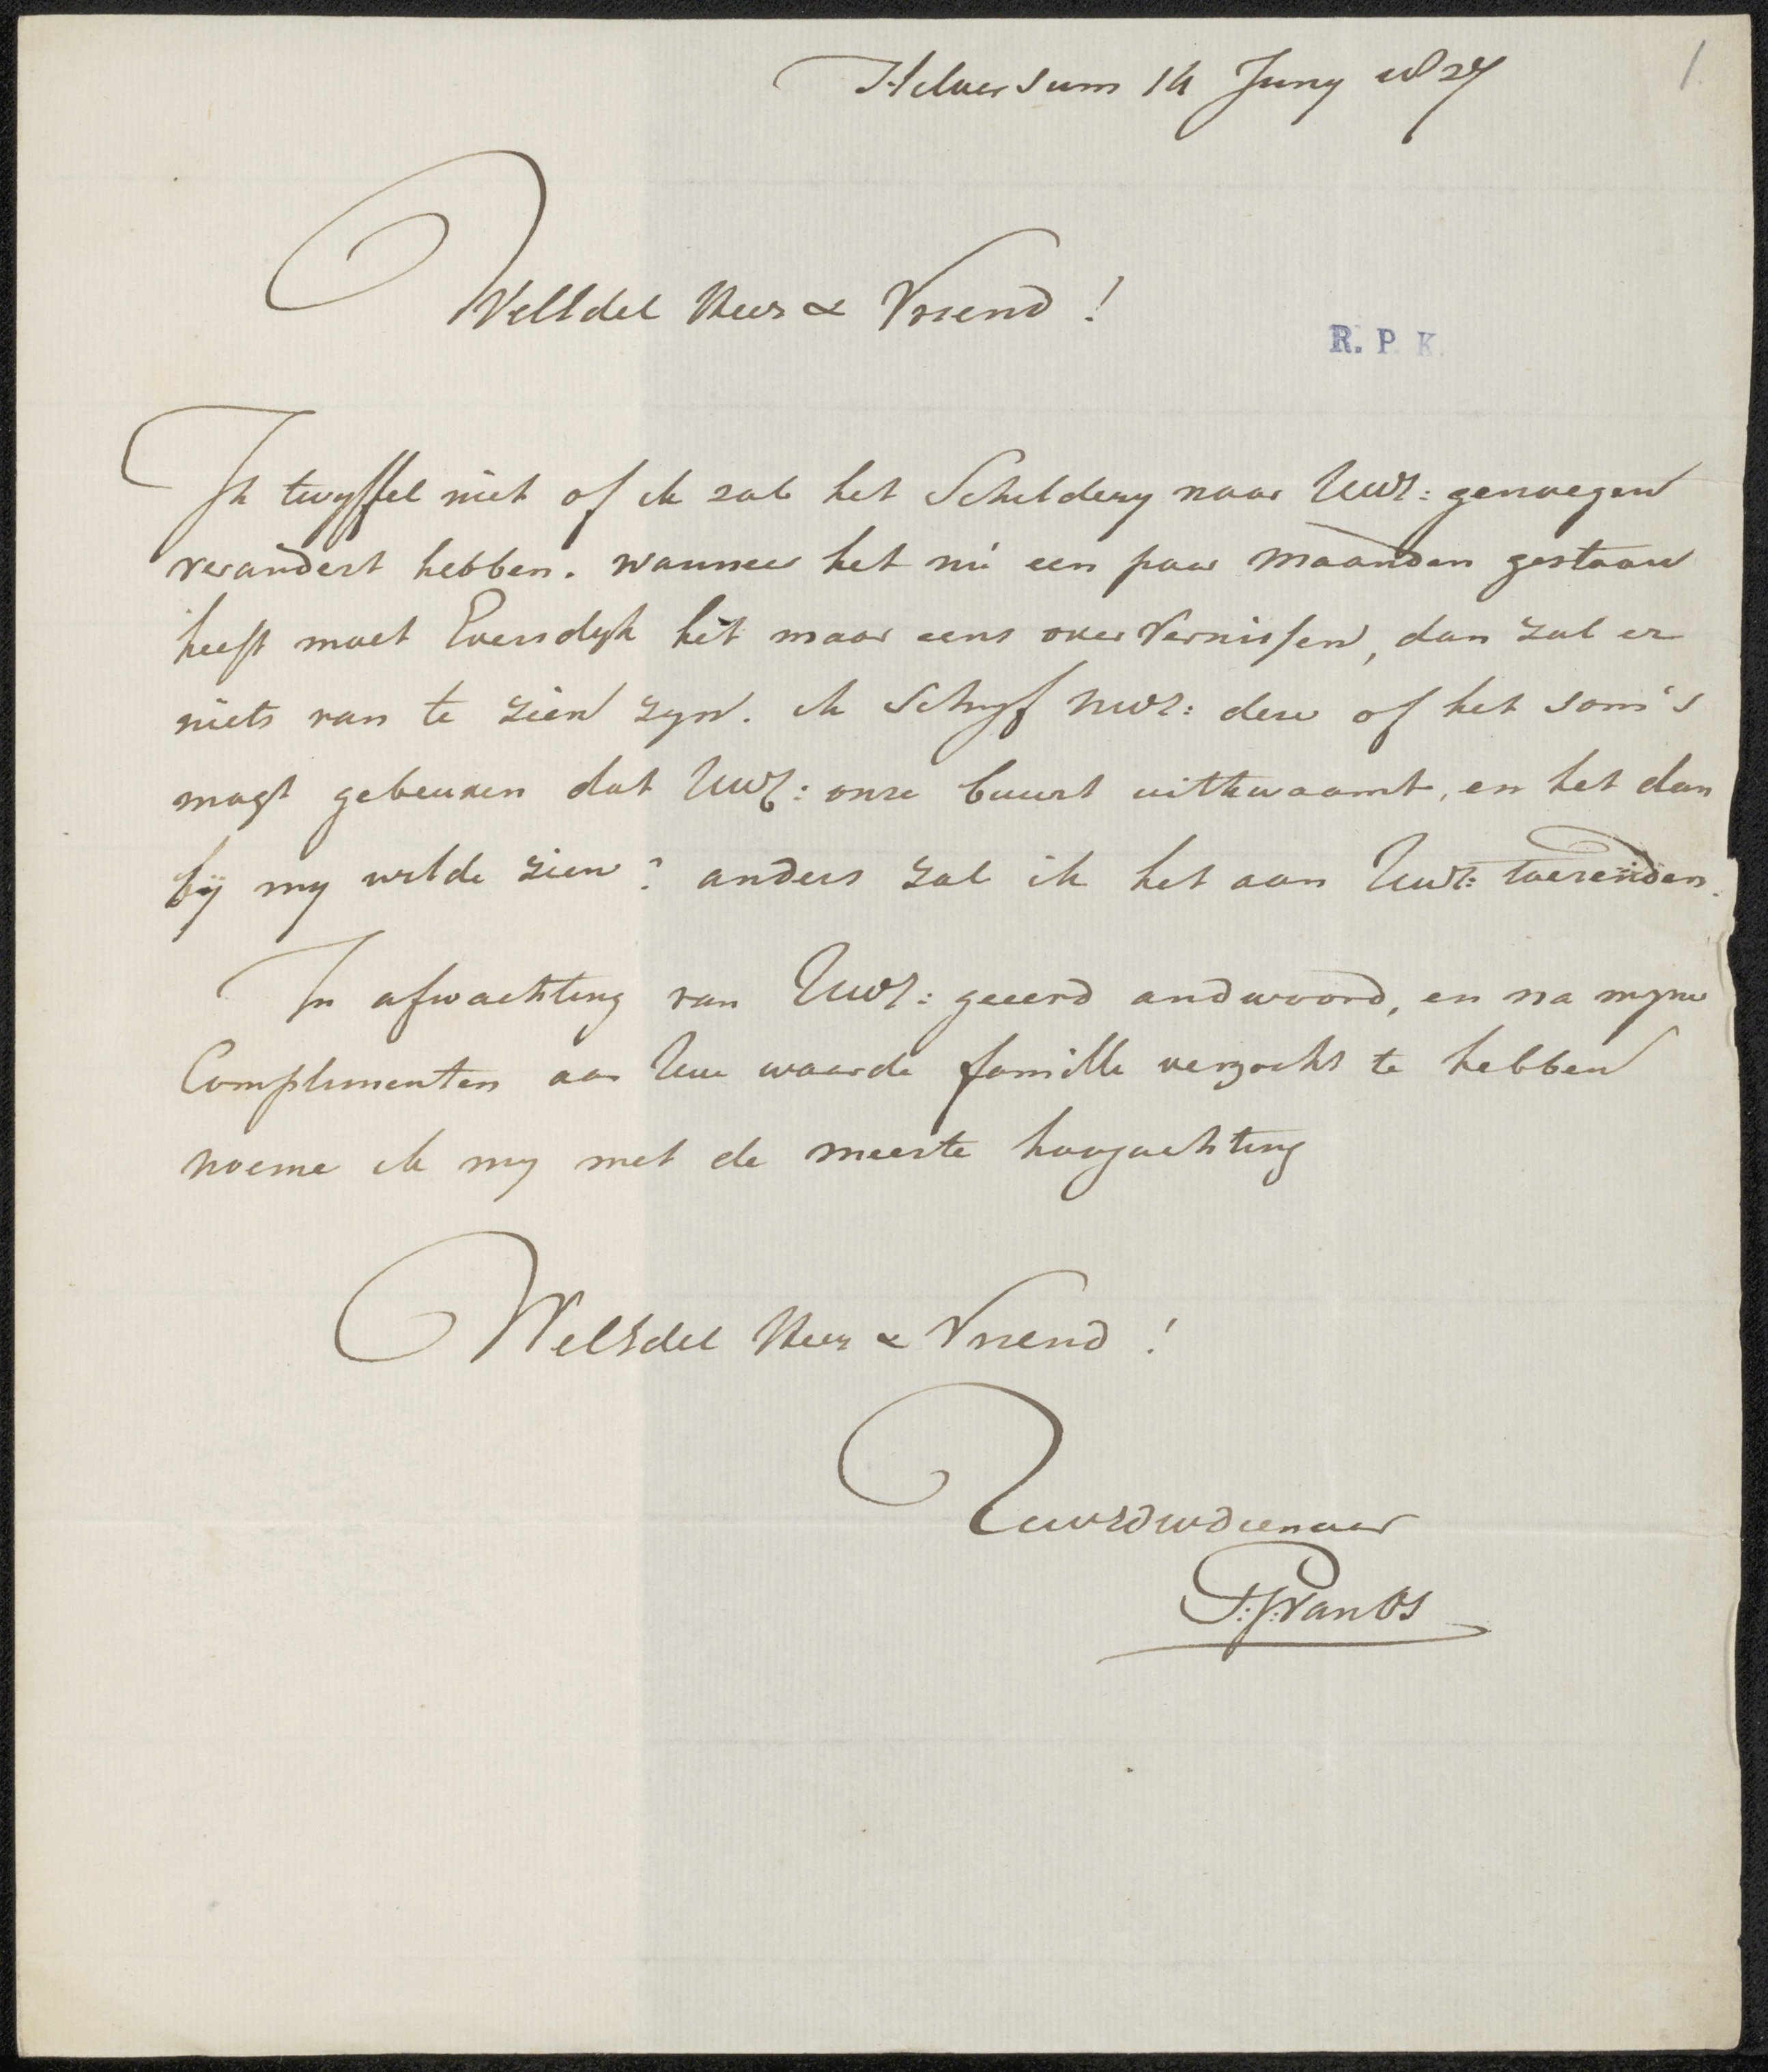 Hilversum 14 Juny 1827
1.
WelEdel Heer & Vriend!
R. P. K.
Ik twyffel niet of ik zal het Schildery naar UwE: genoegen
verandert hebben. wanneer het nú een paar maanden gestaan
heeft moet Eversdyk het maar eens over Vernissen, dan zal er
niets van te zien zyn. ik Schryf UwE: deze of het som's
magt gebeuren dat UwE: onze buurt uitkwaamt, en het dan
bÿ my wilde zien? anders zal ik het aan UwE: toezenden.
In afwachting van UwE: geeerd andwoord, en na myne
Complimenten aan Uwe waarde famille verzocht te hebben
noeme ik my met de meeste hoogachting
WelEdel Heer & Vriend!
UwEdwdienaar
P: G: Van Os